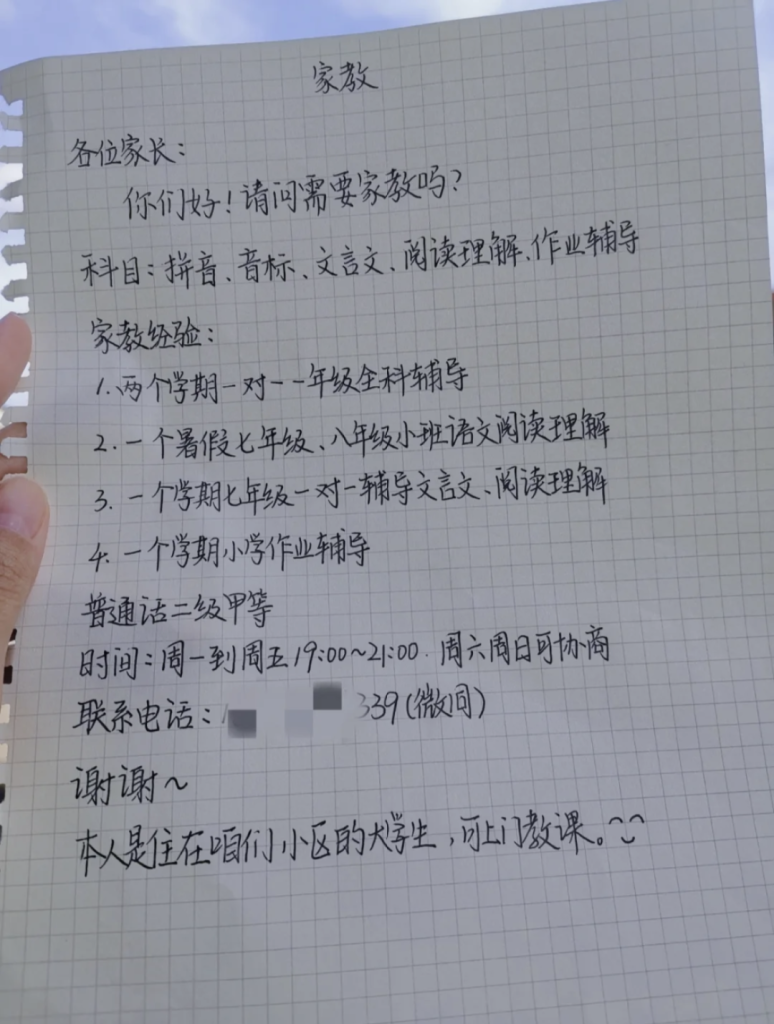 家教
各位家长：
你们好！请问需要家教吗？
科目：拼音、音标、文言文、阅读理解、作业辅导
家教经验：
1.两个学期一对一一年级全科辅导
2.一个暑假七年级、八年级小班语文阅读理解
3.一个学期七年级一对一辅导文言文、阅读理解
4.一个学期小学作业辅导
普通话二级甲等
时间：周一到周五19:00~21:00.周六周日可协商
联系电话：339(微同)
谢谢~
本人是住在咱们小区的大学生，可上门教课。